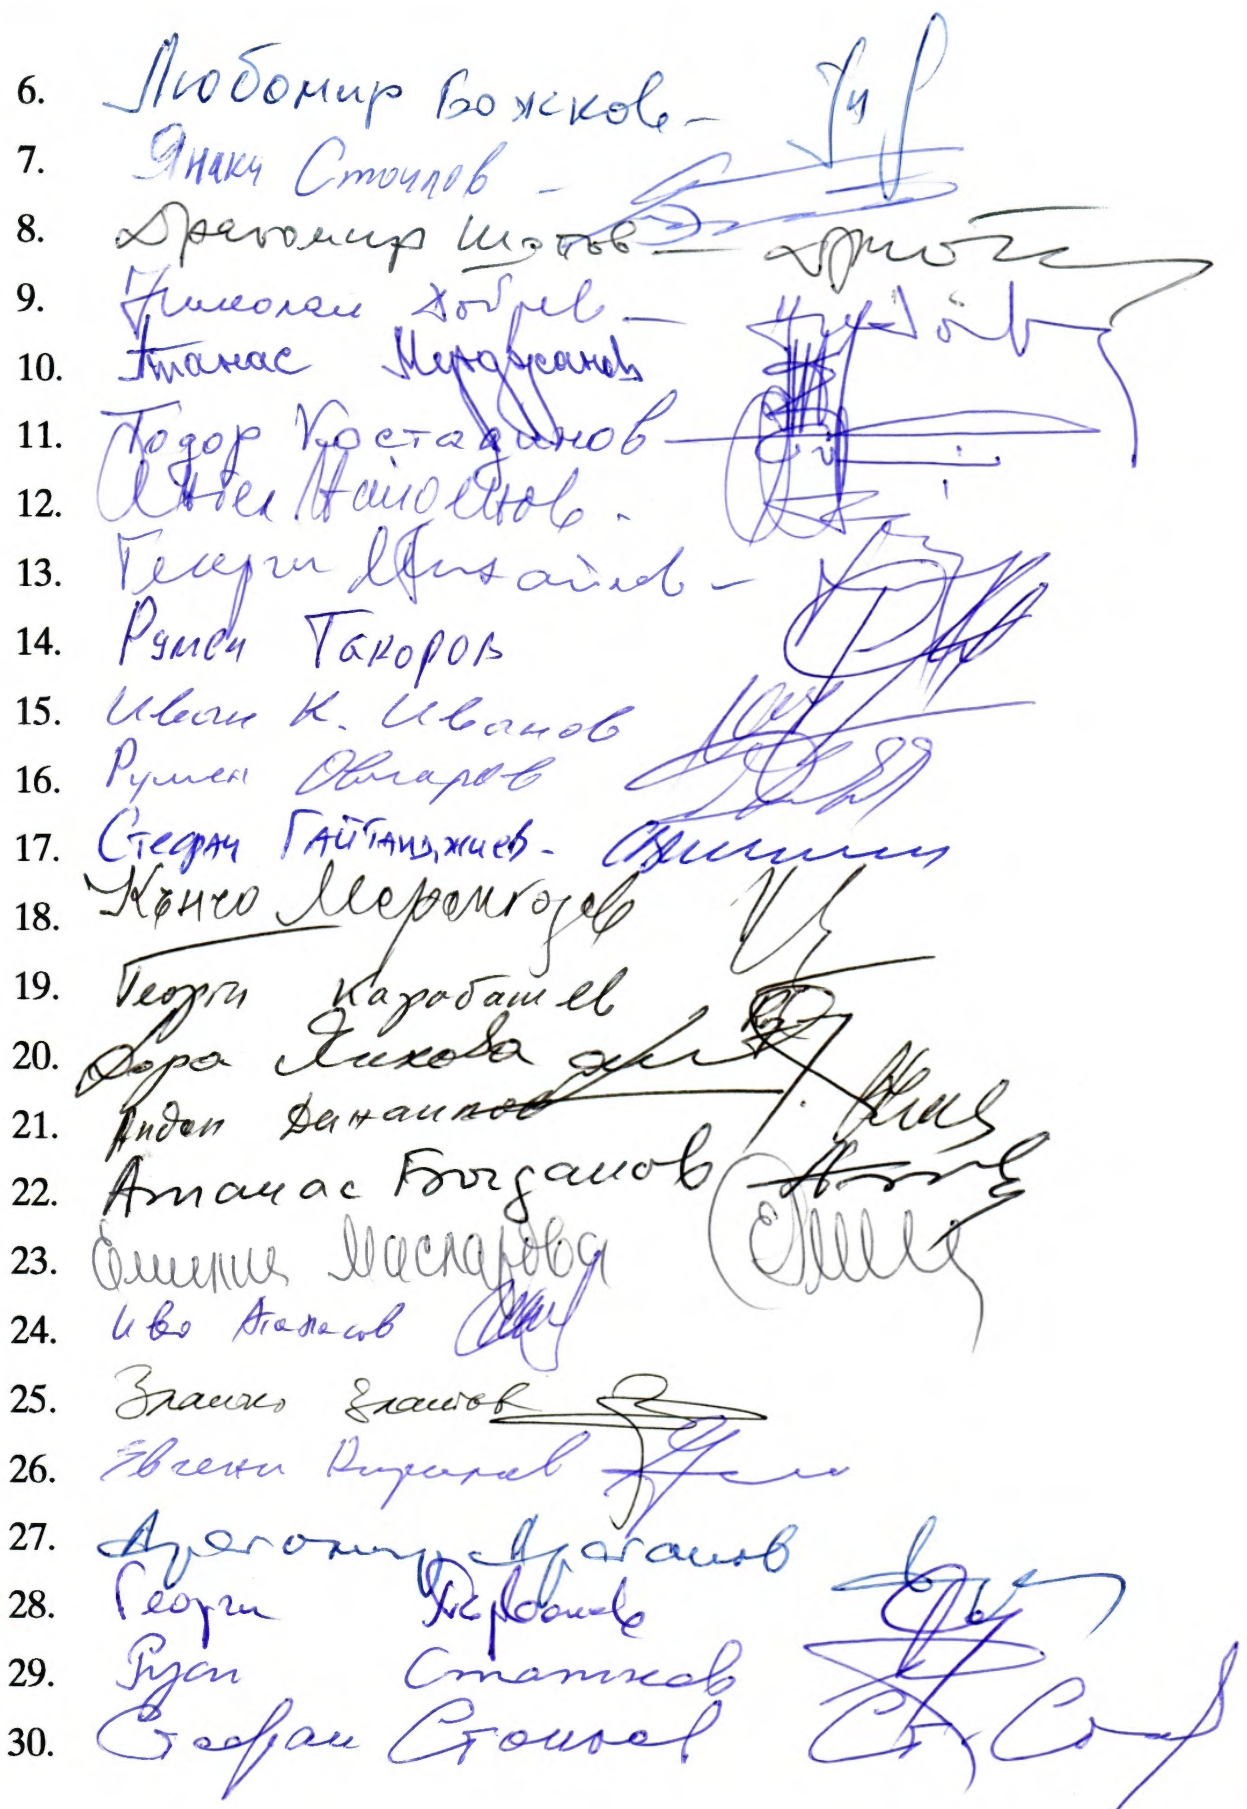 6. Любомир Божков –
7. Янаки Стоилов –
8. Драгомир Шопов –
9. Николай Добрев –
10. Атанас Мерджанов
11. Тодор Костадинов
12. Ангел Найденов.
13. Георги Михайлов –
14. Румен Такоров
15. Иван К. Иванов
16. Румен Овчаров
17. Стефан Гайтанджиев -
18. Кънчо
19. Георги Карабашев
20. Дора Янкова
21.
22. Атанас Богданов
23. Емилия Масларова
24. Иво Атанасов
25. Златко Златев
26. Евгени Кирилов
27. Драгомир Драганов
28. Георги Първанов
29. Руси Статков
30. Стефан Стоилов